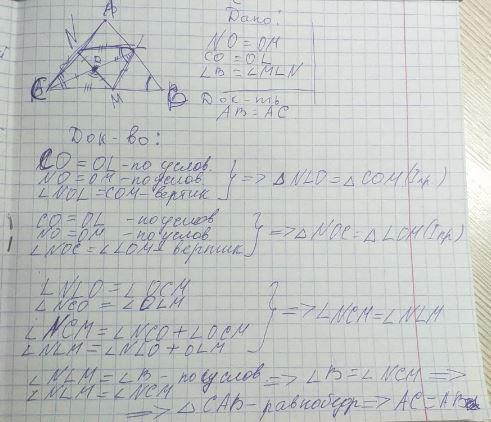 Дано:
NO = OM
CO = OL
∠B = ∠MLN
Док-ть
AB = AC
A
N
L
O
C
M
B
Док-во:
CO = OL - по услов.
NO = OM - по услов.
∠NOL = COM - вертик
} => △NLO = △COM (I пр.)
CO = OL - по услов
NO = OM - по услов
∠NOC = ∠LOM - вертик
} => △NOC = △LOM (I пр.)
∠NLO = ∠OCM
∠NCO = ∠OLM
∠NCM = ∠NCO + ∠OCM
∠NLM = ∠NLO + OLM
} => ∠NCM = ∠NLM
∠NLM = ∠B - по услов => ∠B = ∠NCM =>
∠NLM = ∠NCM
=> △CAB - равнобедр => AC = AB